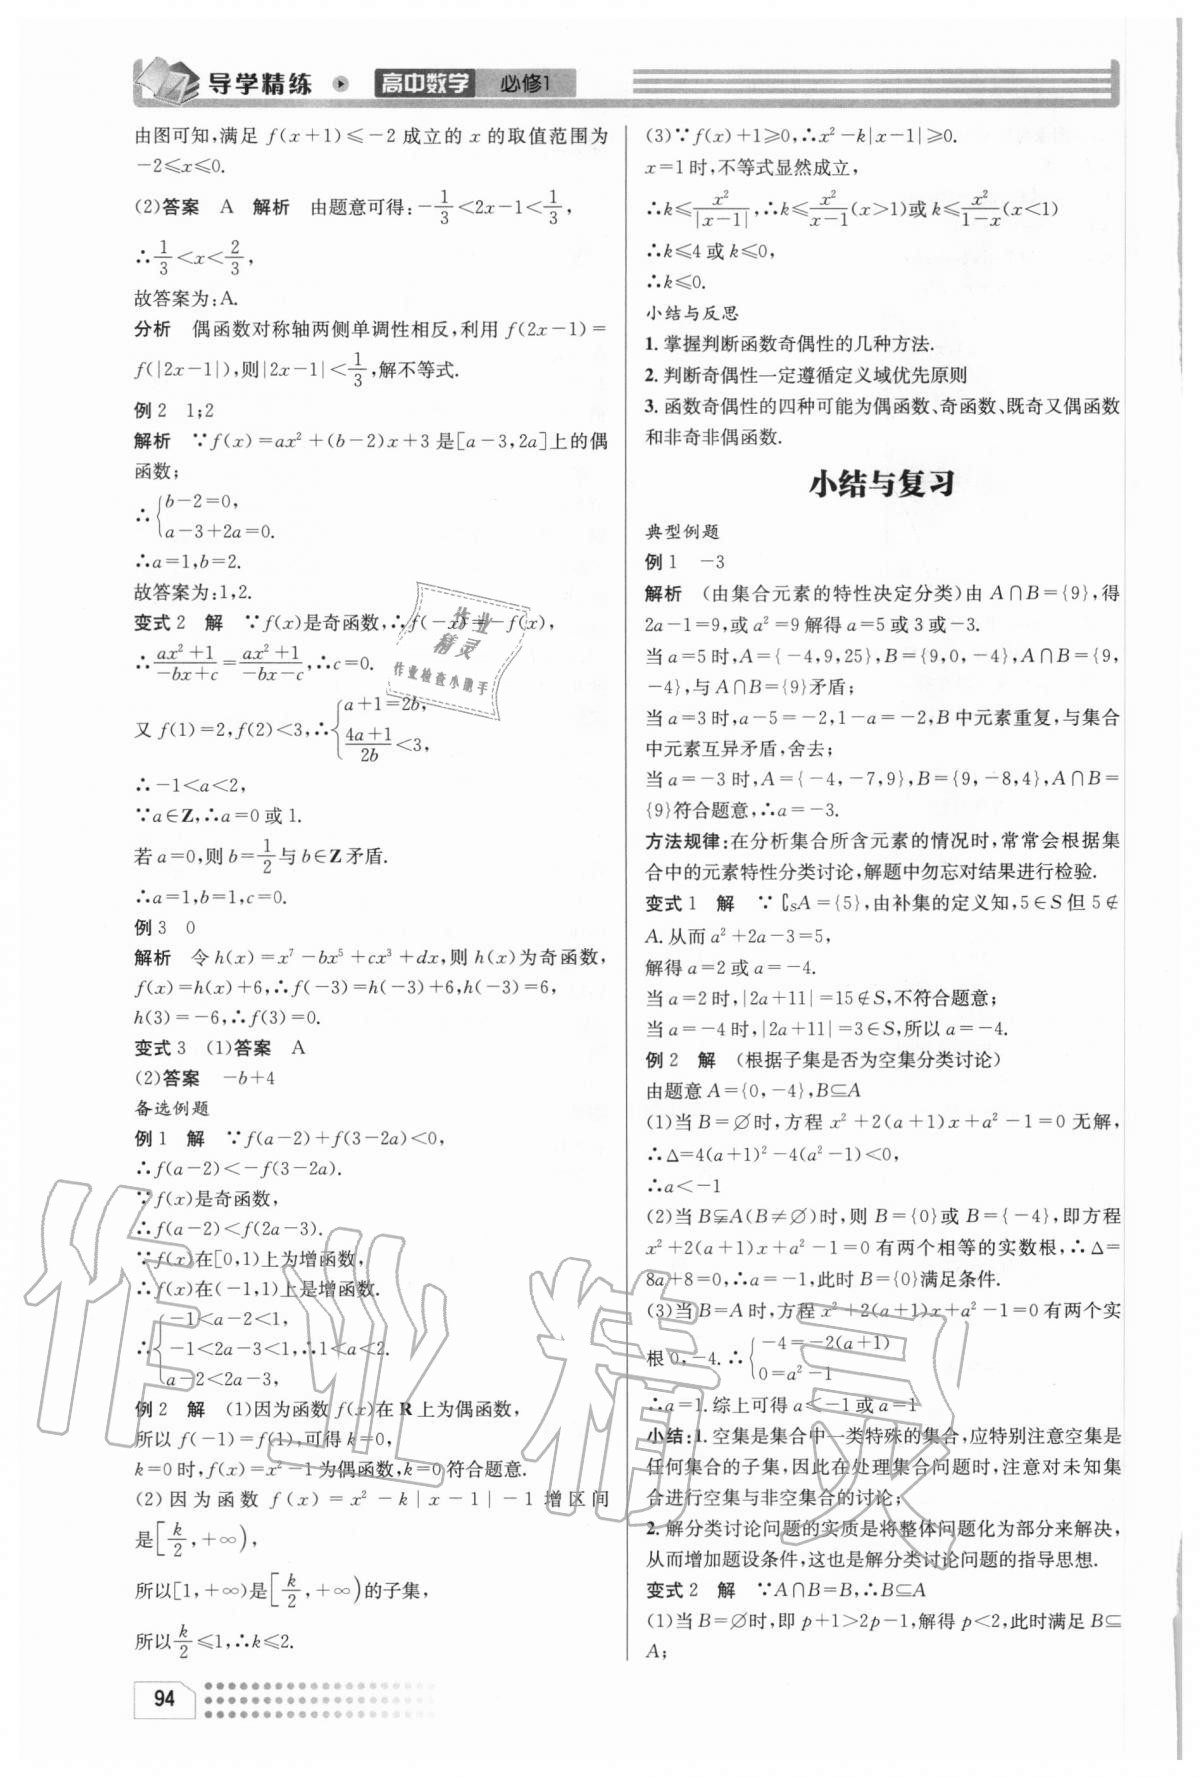 导学精练 高中数学 必修1
由图可知,满足 f(x+1)≤-2 成立的 x 的取值范围为
-2≤x≤0.
(2)答案 A 解析 由题意可得:-1/3<2x-1<1/3,
∴1/3<x<2/3,
故答案为:A.
分析 偶函数对称轴两侧单调性相反,利用 f(2x-1)=
f(|2x-1|),则|2x-1|<1/3,解不等式.
例2 1;2
解析 ∵f(x)=ax²+(b-2)x+3 是[a-3,2a]上的偶
函数;
∴{b-2=0,
a-3+2a=0.
∴a=1,b=2.
故答案为:1,2.
变式2 解 ∵f(x)是奇函数,∴f(-x)=-f(x),
∴(ax²+1)/(-bx+c)=(ax²+1)/(-bx-c),∴c=0.
又 f(1)=2,f(2)<3,∴{a+1=2b,
(4a+1)/(2b)<3,
∴-1<a<2,
∵a∈Z,∴a=0 或 1.
若 a=0,则 b=1/2 与 b∈Z 矛盾.
∴a=1,b=1,c=0.
例3 0
解析 令 h(x)=x⁷-bx⁵+cx³+dx,则 h(x)为奇函数,
f(x)=h(x)+6,∴f(-3)=h(-3)+6,h(-3)=6,
h(3)=-6,∴f(3)=0.
变式3 (1)答案 A
(2)答案 -b+4
备选例题
例1 解 ∵f(a-2)+f(3-2a)<0,
∴f(a-2)<-f(3-2a).
∵f(x)是奇函数,
∴f(a-2)<f(2a-3).
∵f(x)在[0,1)上为增函数,
∴f(x)在(-1,1)上是增函数.
∴{-1<a-2<1,
-1<2a-3<1,∴1<a<2.
a-2<2a-3,
例2 解 (1)因为函数 f(x)在 R 上为偶函数,
所以 f(-1)=f(1),可得 k=0,
k=0 时,f(x)=x²-1 为偶函数,k=0 符合题意.
(2)因为函数 f(x)=x²-k|x-1|-1 增区间
是[k/2,+∞),
所以[1,+∞)是[k/2,+∞)的子集,
所以k/2≤1,∴k≤2.
94
(3)∵f(x)+1≥0,∴x²-k|x-1|≥0.
x=1 时,不等式显然成立,
∴k≤x²/|x-1|,∴k≤x²/(x-1)(x>1)或 k≤x²/(1-x)(x<1)
∴k≤4 或 k≤0,
∴k≤0.
小结与反思
1. 掌握判断函数奇偶性的几种方法.
2. 判断奇偶性一定遵循定义域优先原则
3. 函数奇偶性的四种可能为偶函数、奇函数、既奇又偶函数
和非奇非偶函数.
小结与复习
典型例题
例1 -3
解析 (由集合元素的特性决定分类)由 A∩B={9},得
2a-1=9,或 a²=9 解得 a=5 或 3 或-3.
当 a=5 时,A={-4,9,25},B={9,0,-4},A∩B={9,
-4},与 A∩B={9}矛盾;
当 a=3 时,a-5=-2,1-a=-2,B 中元素重复,与集合
中元素互异矛盾,舍去;
当 a=-3 时,A={-4,-7,9},B={9,-8,4},A∩B=
{9}符合题意,∴a=-3.
方法规律:在分析集合所含元素的情况时,常常会根据集
合中的元素特性分类讨论,解题中勿忘对结果进行检验.
变式1 解 ∵∁SA={5},由补集的定义知,5∈S 但 5∉
A.从而 a²+2a-3=5,
解得 a=2 或 a=-4.
当 a=2 时,|2a+11|=15∉S,不符合题意;
当 a=-4 时,|2a+11|=3∈S,所以 a=-4.
例2 解 (根据子集是否为空集分类讨论)
由题意 A={0,-4},B⊆A
(1)当 B=∅时,方程 x²+2(a+1)x+a²-1=0 无解,
∴Δ=4(a+1)²-4(a²-1)<0,
∴a<-1
(2)当 B⫋A(B≠∅)时,则 B={0}或 B={-4},即方程
x²+2(a+1)x+a²-1=0 有两个相等的实数根,∴Δ=
8a+8=0,∴a=-1,此时 B={0}满足条件.
(3)当 B=A 时,方程 x²+2(a+1)x+a²-1=0 有两个实
根 0,-4.∴{-4=-2(a+1)
0=a²-1
∴a=1.综上可得 a≤-1 或 a=1
小结:1. 空集是集合中一类特殊的集合,应特别注意空集是
任何集合的子集,因此在处理集合问题时,注意对未知集
合进行空集与非空集合的讨论;
2. 解分类讨论问题的实质是将整体问题化为部分来解决,
从而增加题设条件,这也是解分类讨论问题的指导思想.
变式2 解 ∵A∩B=B,∴B⊆A
(1)当 B=∅时,即 p+1>2p-1,解得 p<2,此时满足 B⊆
A;
作业
精灵
作业检查小助手
作业精灵